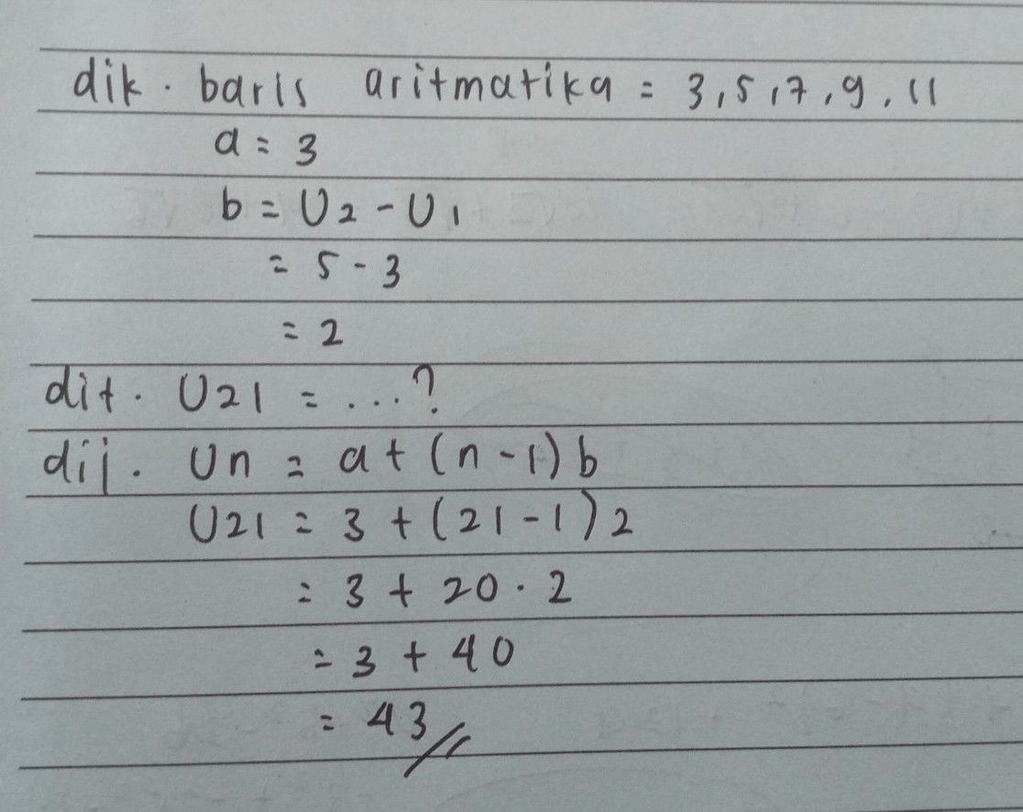 dik. baris aritmatika = 3, 5, 7, 9, 11
a = 3
b = U2 - U1
= 5 - 3
= 2
dit. U21 = ...?
dij. Un = a + (n - 1) b
U21 = 3 + (21 - 1) 2
= 3 + 20 . 2
= 3 + 40
= 43 //